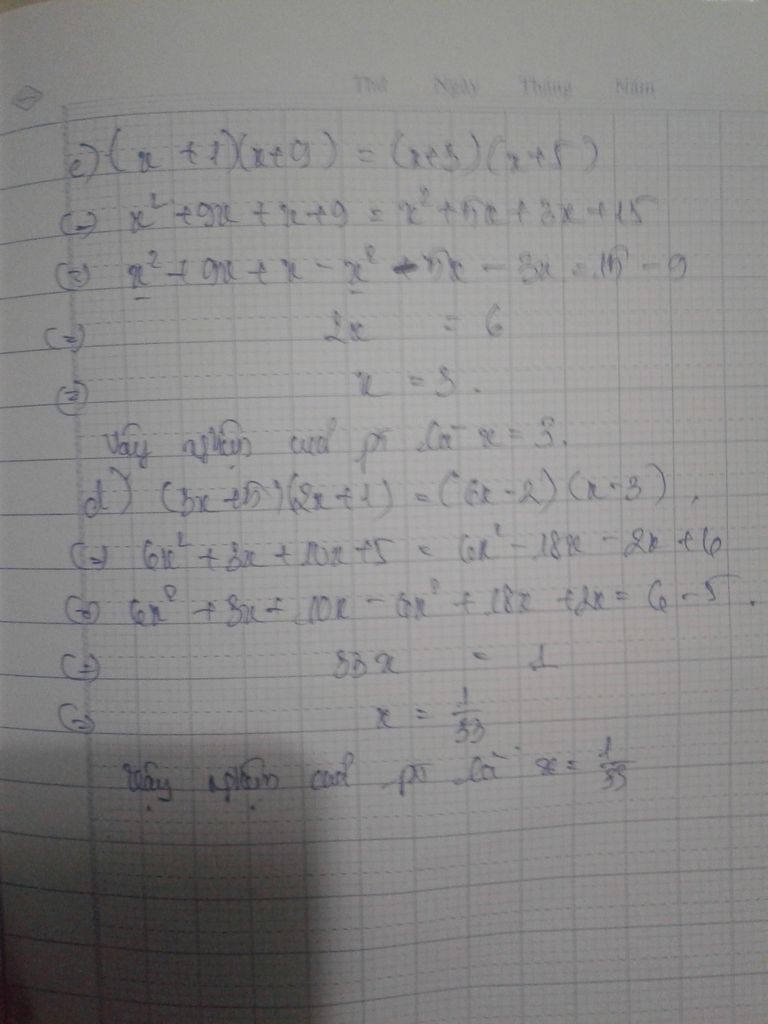 Thứ Ngày Tháng Năm
c) (x + 1)(x+9) = (x+3)(x+5)
(=) x² + 9x + x + 9 = x² + 5x + 3x + 15
(=) x² + 9x + x - x² - 5x - 3x = 15 - 9
(=) 2x = 6
(=) x = 3.
Vậy nghiệm của pt là x = 3.
d) (3x+5)(2x+1) = (6x-2)(x-3).
(=) 6x² + 3x + 10x + 5 = 6x² - 18x - 2x + 6
(=) 6x² + 3x + 10x - 6x² + 18x + 2x = 6 - 5.
(=) 33x = 1
(=) x = 1/33
Vậy nghiệm của pt là x = 1/33